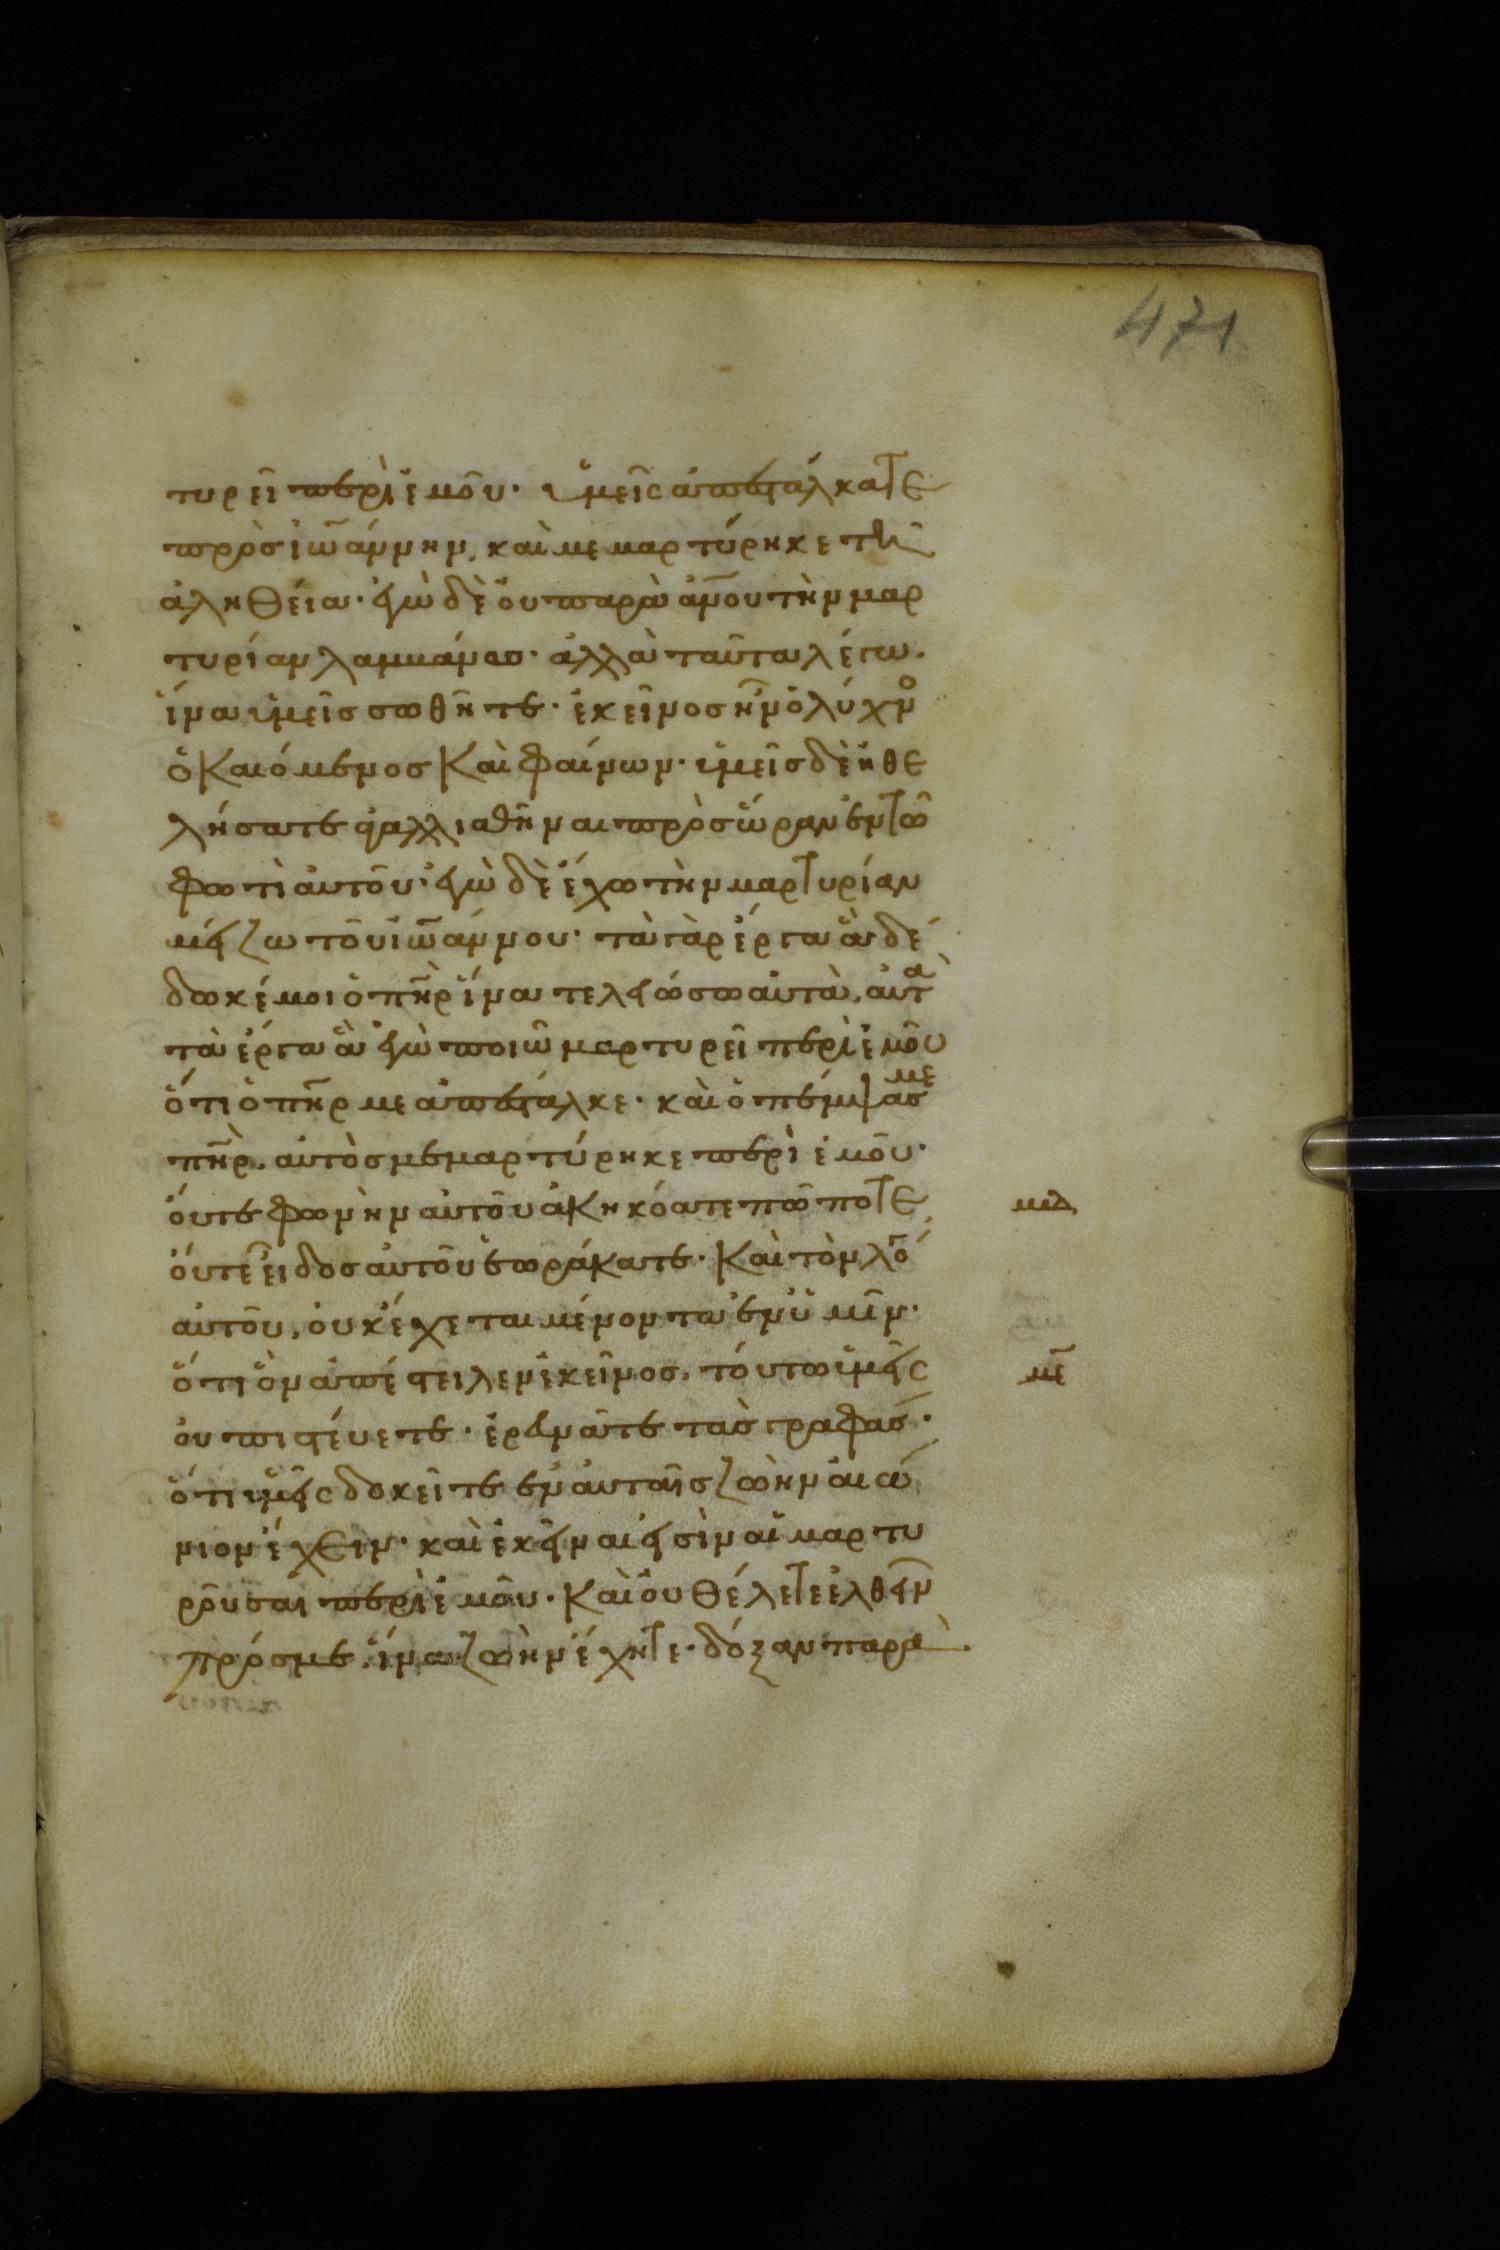 471
τυρεῖ περὶ ἐμοῦ· ὑμεῖς ἀπεστάλκατε
πρὸς ἰω̅άννην, καὶ μεμαρτύρηκε τῆ
ἀληθεία· ἐγὼ δὲ οὐ παρὰ ἀν̅ου τὴν μαρ
τυρίαν λαμβάνω· ἀλλὰ ταῦτα λέγω.
ἵνα ὑμεῖς σωθῆτε· ἐκεῖνος ἦν ὁ λύχνο
ὁ καιόμενος καὶ φαίνων· ὑμεῖς δὲ ἠθε
λήσατε ἀγαλλιαθῆναι πρὸς ὥραν ἐν τῶ
φωτὶ αὐτοῦ· ἐγὼ δὲ ἔχω τὴν μαρτυρίαν
μείζω τοῦ ἰω̅άννου· τὰ γὰρ ἔργα ἃ δέ
δωκέ μοι ὁ πη̅ρ ἵνα τελειώσω αὐτὰ, αὐτὰ
τὰ ἔργα ἃ ἐγὼ ποιῶ μαρτυρεῖ περὶ ἐμοῦ
ὅτι ὁ πη̅ρ με ἀπέσταλκε· καὶ ὁ πέμψας με
πη̅ρ, αὐτὸς μεμαρτύρηκε περὶ ἐμοῦ·
οὔτε φωνὴν αὐτοῦ ἀκηκόατε πώποτε,
μδ
οὔτε εἶδος αὐτοῦ ἑωράκατε· καὶ τὸν λό
αὐτοῦ, οὐκ ἔχεται μένοντα ἐν ὑμῖν·
ὅτι ὃν ἀπέστειλεν ἐκεῖνος, τούτω ὑμεῖς
με
οὐ πιστεύετε· ἐρευνᾶτε τὰς γραφάς·
ὅτι ὑμεῖς δοκεῖτε ἐν αὐταῖς ζωὴν αἰώ
νιον ἔχειν· καὶ ἐκεῖναι εἰσὶν αἱ μαρτυ
ροῦσαι περὶ ἐμοῦ· καὶ οὐ θέλετε ἐλθεῖν
πρός με, ἵνα ζωὴν ἔχητε· δόξαν παρὰ